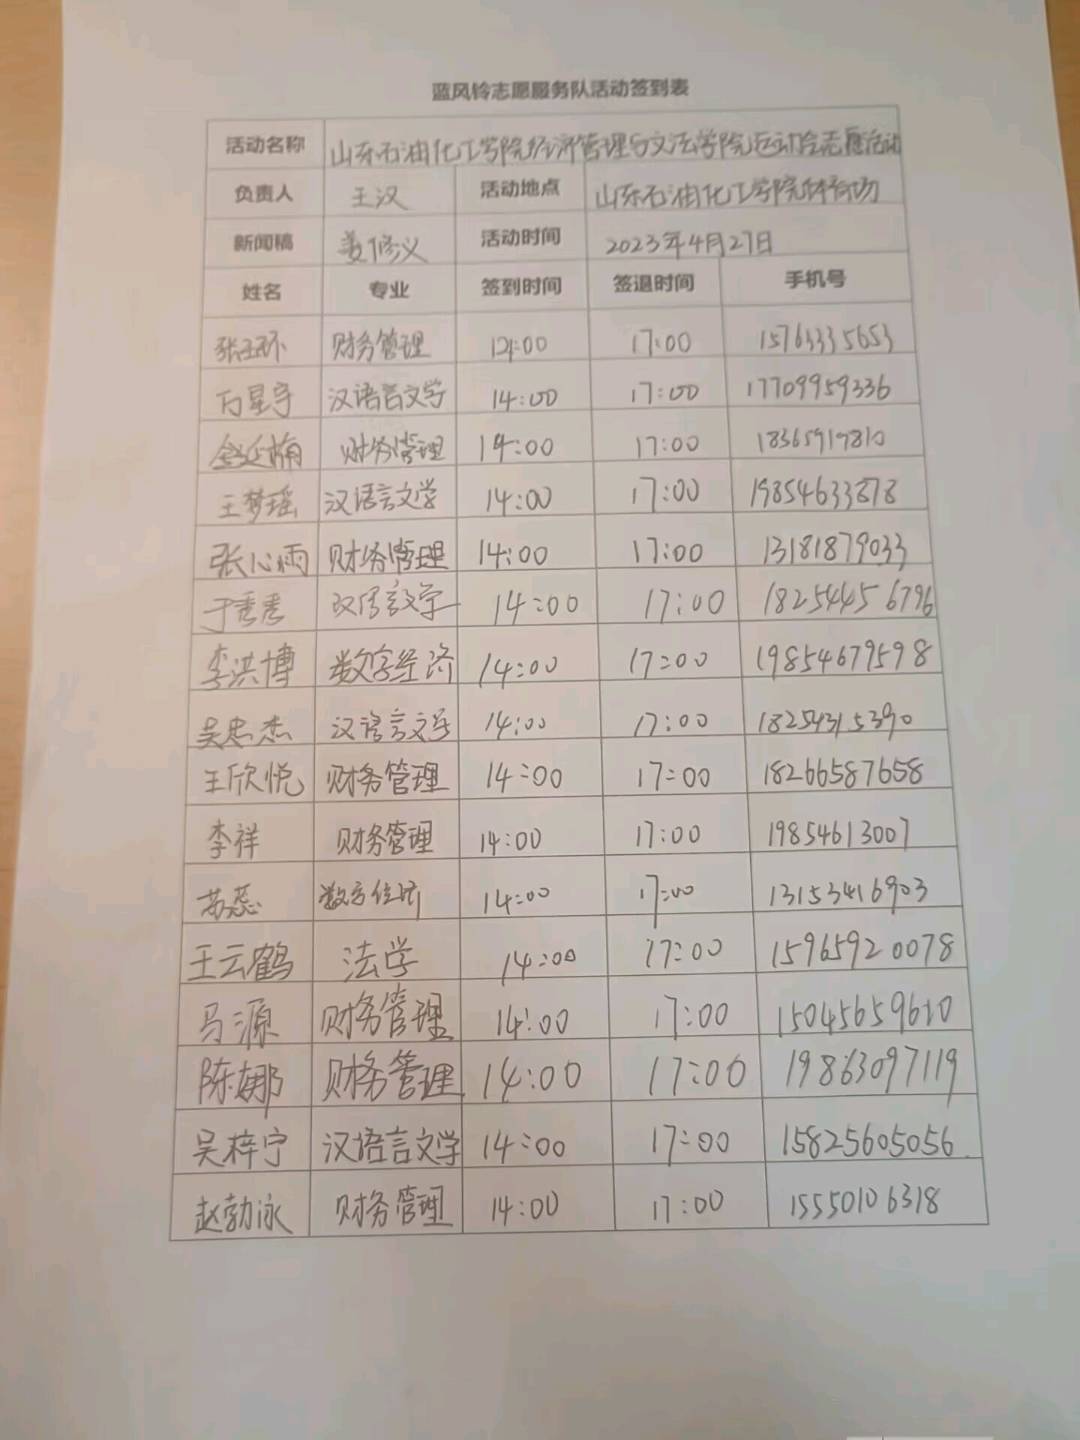 蓝风铃志愿服务队活动签到表
活动名称 山东石油化工学院经济管理与文法学院运动会志愿活动
负责人 王汉 活动地点 山东石油化工学院体育场
新闻稿 姜修义 活动时间 2023年4月27日
姓名 专业 签到时间 签退时间 手机号
张玉环 财务管理 14:00 17:00 15763335653
万星宇 汉语言文学 14:00 17:00 17709959336
延楠 财务管理 14:00 17:00 18365919810
王梦瑶 汉语言文学 14:00 17:00 19854633878
张心雨 财务管理 14:00 17:00 13181879033
于秀秀 汉语言文学 14:00 17:00 18254456796
李洪博 数字经济 14:00 17:00 19854679598
吴忠杰 汉语言文学 14:00 17:00 18254315390
王欣悦 财务管理 14:00 17:00 18266587658
李祥 财务管理 14:00 17:00 19854613007
苏蕊 数字经济 14:00 17:00 13153416903
王云鹤 法学 14:00 17:00 15965920078
马源 财务管理 14:00 17:00 15045659610
陈娜 财务管理 14:00 17:00 19863097119
吴梓宁 汉语言文学 14:00 17:00 15825605056
赵勃泳 财务管理 14:00 17:00 15550106318